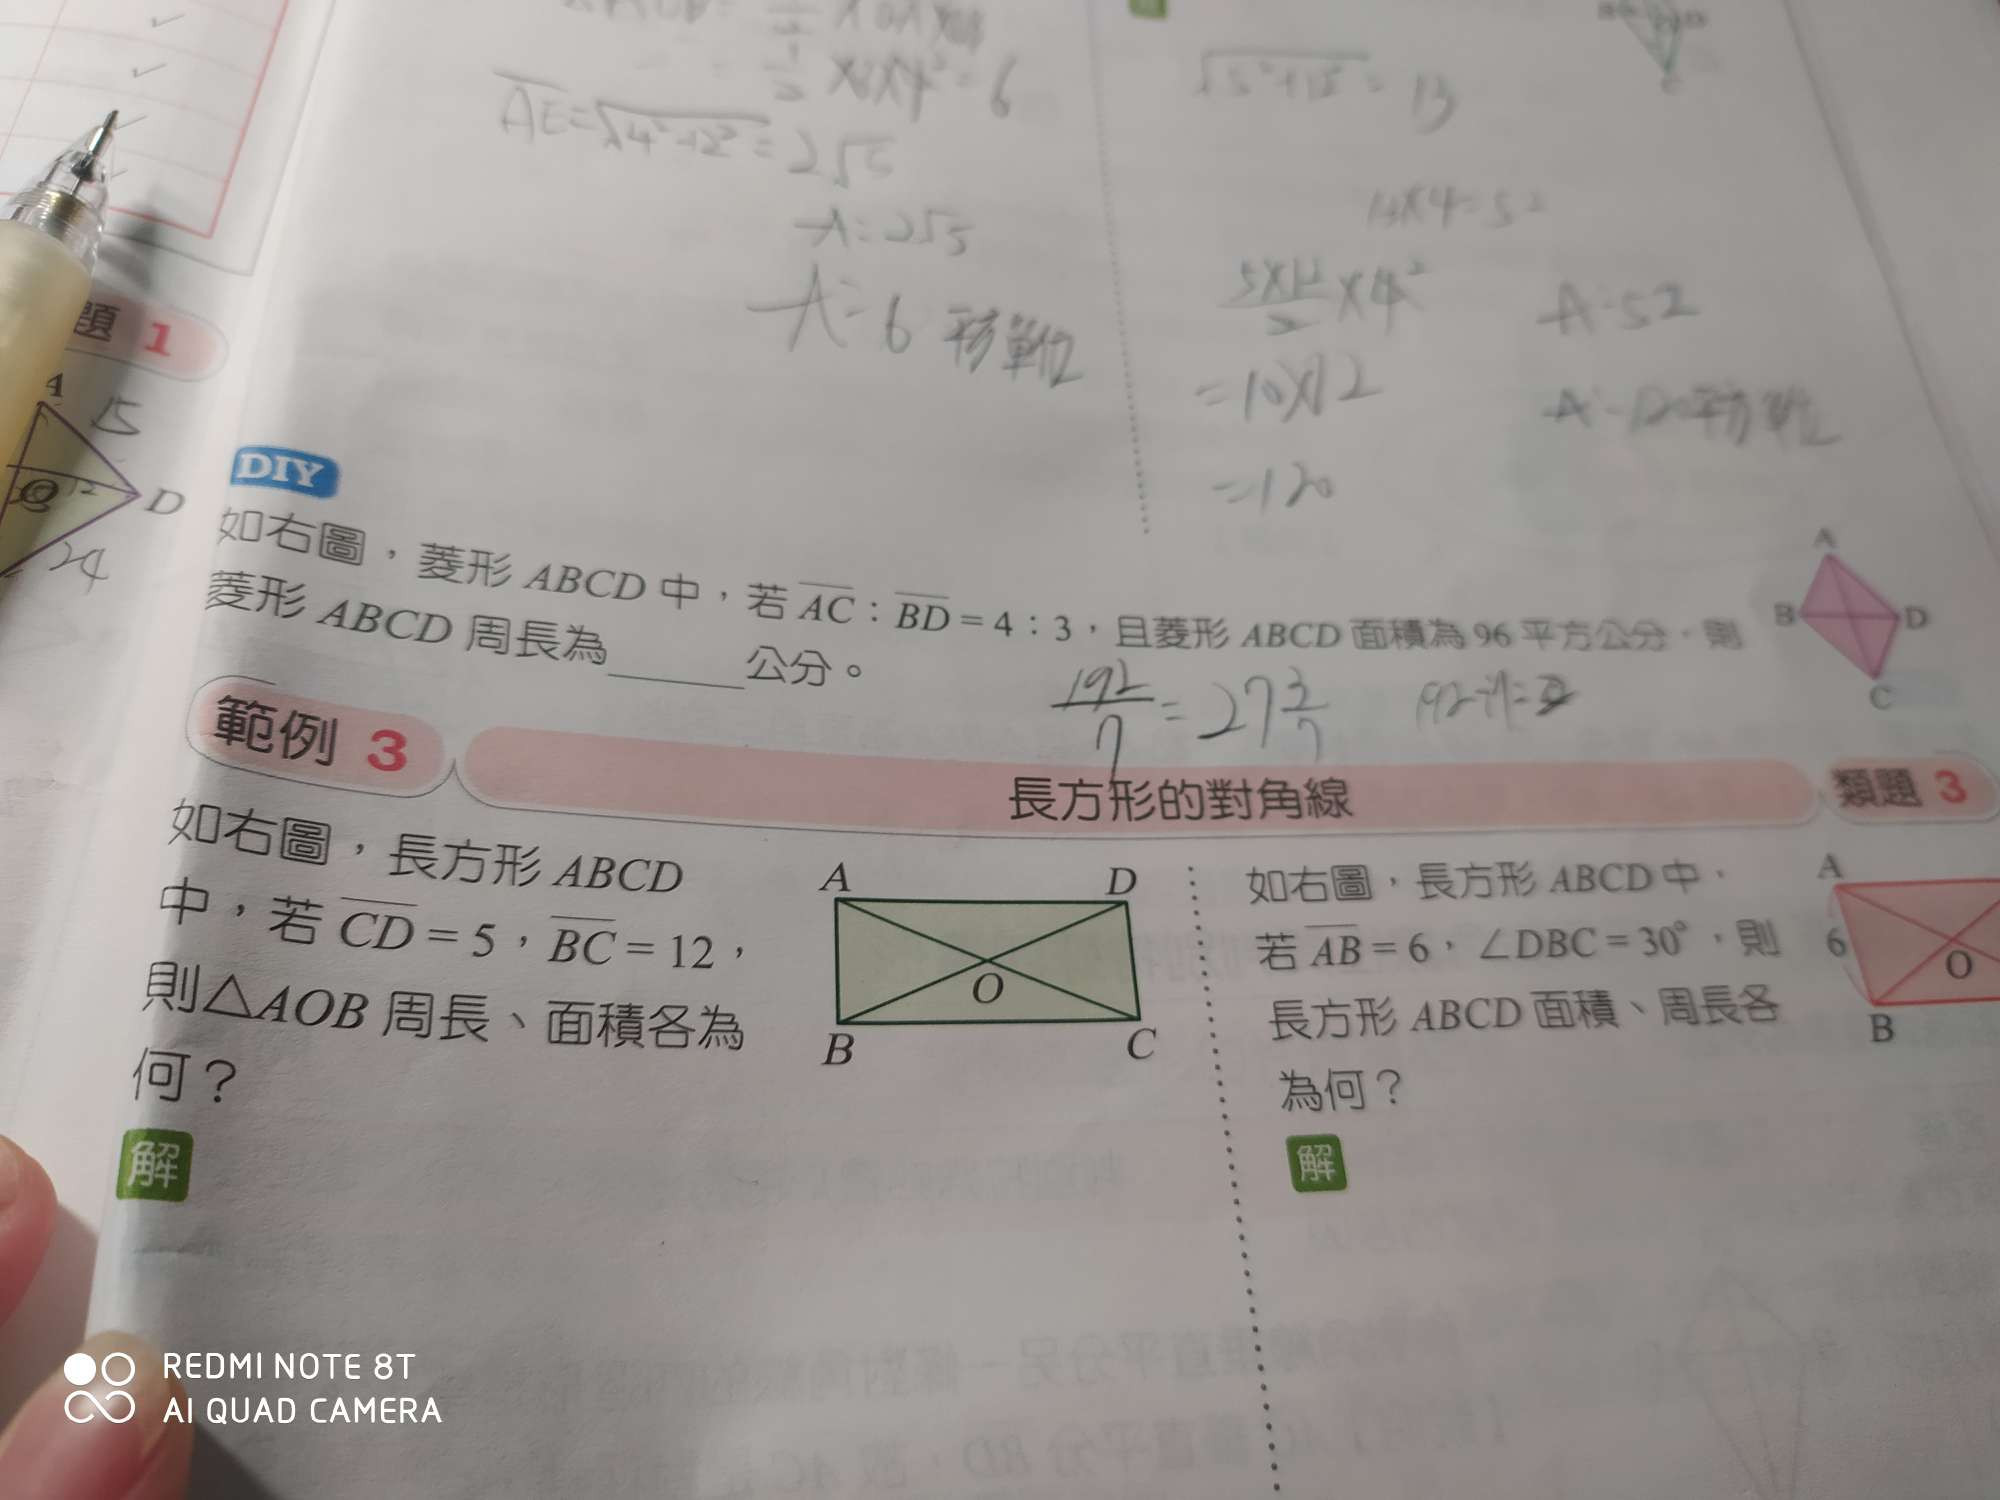 1/2×8×4²=6
AE=√4²+2²=2√5
A=2√5
A=6平方單位
√5²+12²=13
13×4=52
5×12/2×4²
=10×12
=120
A=52
題 1
A
15
12
D
24
DIY
如右圖，菱形 ABCD 中，若 AC：BD＝4：3，且菱形 ABCD 面積為 96 平方公分，則
菱形 ABCD 周長為______公分。
A
B
D
C
192/7=27 3/7
範例 3
長方形的對角線
類題 3
如右圖，長方形 ABCD
中，若 CD＝5，BC＝12，
則△AOB 周長、面積各為
何？
A
D
O
B
C
解
如右圖，長方形 ABCD 中，
若 AB＝6，∠DBC＝30°，則
長方形 ABCD 面積、周長各
為何？
A
6
O
B
解
REDMI NOTE 8T
AI QUAD CAMERA